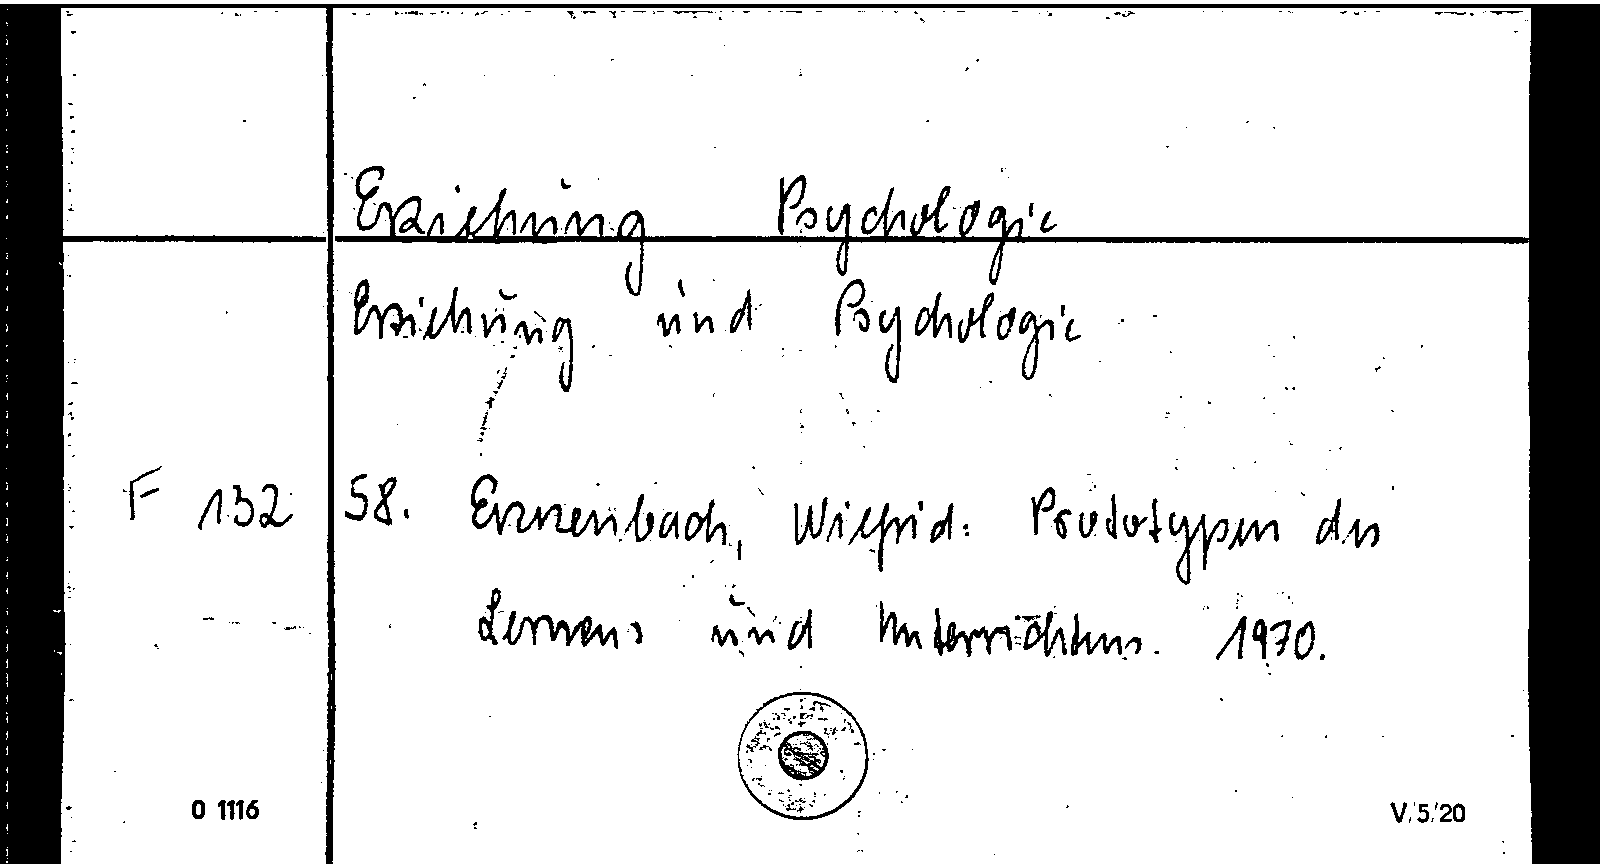 Erziehung Psychologie
Erziehung und Psychologie
F 132 58. Ernzenbach, Wilfrid: Prototypen des
Lernens und Unterrichtens. 1970.
0 1116 V/5/20